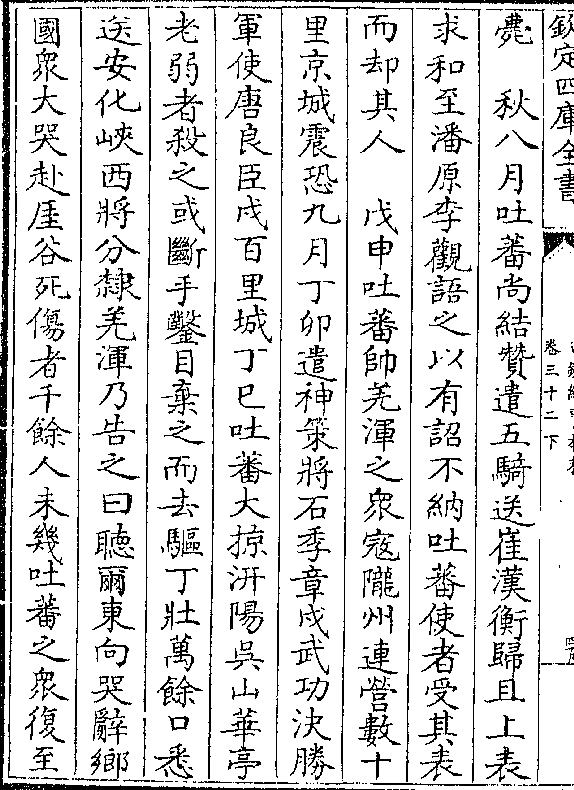 欽定四庫全書
卷三十二下
薨　秋八月吐蕃尚結贊遣五騎送崔漢衡歸且上表
求和至潘原李觀語之以有詔不納吐蕃使者受其表
而却其人　戊申吐蕃帥羌渾之衆寇隴州連營數十
里京城震恐九月丁卯遣神策將石季章戍武功決勝
軍使唐良臣戍百里城丁巳吐蕃大掠汧陽吳山華亭
老弱者殺之或斷手鑿目棄之而去驅丁壯萬餘口悉
送安化峽西將分隸羌渾乃告之曰聽爾東向哭辭鄉
國衆大哭赴厓谷死傷者千餘人未幾吐蕃之衆復至